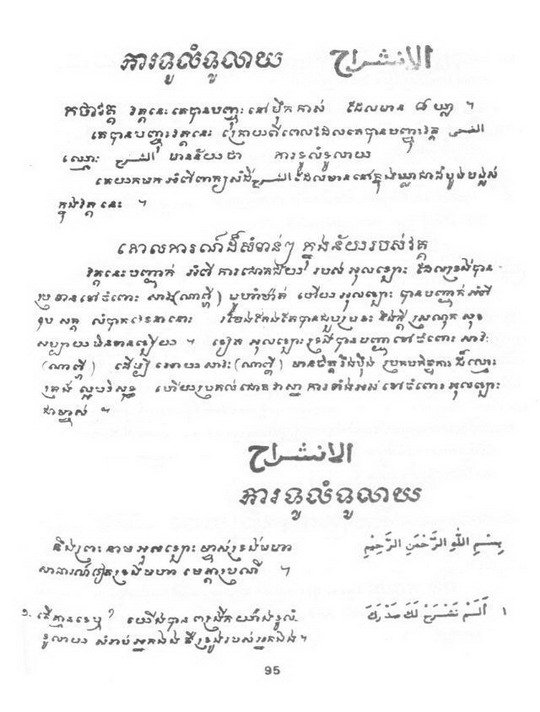 ការទូលំទូលាយ الإنشراح
កថាវគ្គ វគ្គនេះគេបានបញ្ចុះនៅម៉ឹកកាស់ ដែលមាន ៨ ឃ្លា ។
គេបានបញ្ចុះវគ្គនេះ ក្រោយពីពេលដែលគេបានបញ្ចុះវគ្គ
ឈ្មោះ មានន័យថា ការទូលំទូលាយ
គេយកមក អំពីពាក្យ ដែលមាននៅក្នុងឃ្លាជាដំបូងបង្អស់
ក្នុងវគ្គនេះ ។
គោលការណ៍ដ៏សំខាន់ៗ ក្នុងន័យរបស់វគ្គ
វគ្គនេះបញ្ជាក់ អំពី ការជោគជ័យ របស់ អុលឡោះ ដែលទ្រង់បាន
ប្រទានទៅចំពោះ សាវ៉ៈ(ណាពី) មូហាំម៉ាត់ ហើយ អុលឡោះ បានបញ្ជាក់អំពី
ឧបសគ្គ លំបាកវេទនានោះ
សប្បាយ មិនខានឡើយ ។ ទៀត អុលឡោះ ទ្រង់បានបញ្ជា ទៅចំពោះ សាវ៉ៈ
(ណាពី) ដើម្បី អោយ សាវ៉ៈ (ណាពី) មានចិត្តរឹងប៉ឹង
ត្រង់ ល្អបរិសុទ្ធ ហើយប្រគល់ជោគវាសនា ការទាំងអស់ ទៅចំពោះ អុលឡោះ
ជាម្ចាស់ ។
الإنشراح
ការទូលំទូលាយ
នឹងព្រះនាមអុលឡោះម្ចាស់ទ្រង់មហា بِسْمِ اللَّهِ الرَّحْمَنِ الرَّحِيْمِ
សាធារណ៍ទៀតទ្រង់មហា មេត្តាប្រណី ។
១. តើគ្មានទេឬ? យើងបាន ពង្រីកយ៉ាងទូលំ ١ اَلَمْ نَشْرَحْ لَكَ صَدْرَكَ
ទូលាយ សំរាប់អ្នកឯង នឹទ្រូងរបស់អ្នកឯង។
95